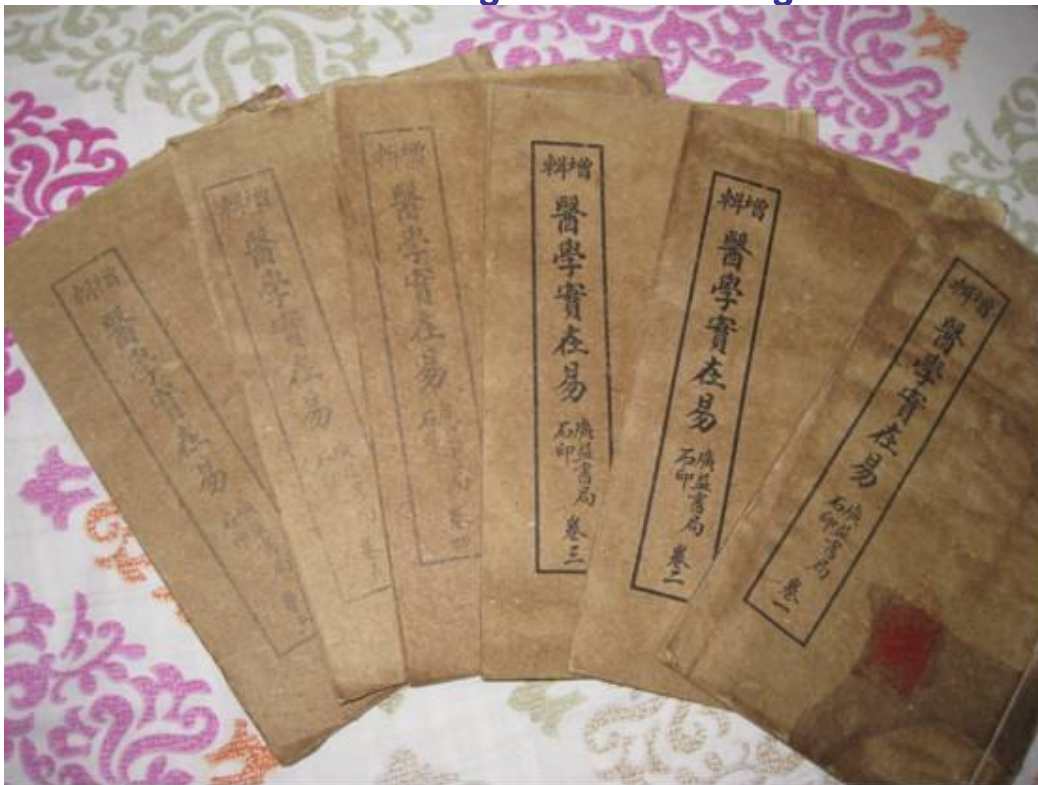 增輯
醫學實在易
廣益書局
石印
卷一
增輯
醫學實在易
廣益書局
石印
卷二
增輯
醫學實在易
廣益書局
石印
卷三
增輯
醫學實在易
書局
石
卷四
增輯
醫學實在易
卷
增輯
醫學實在易
石印
卷